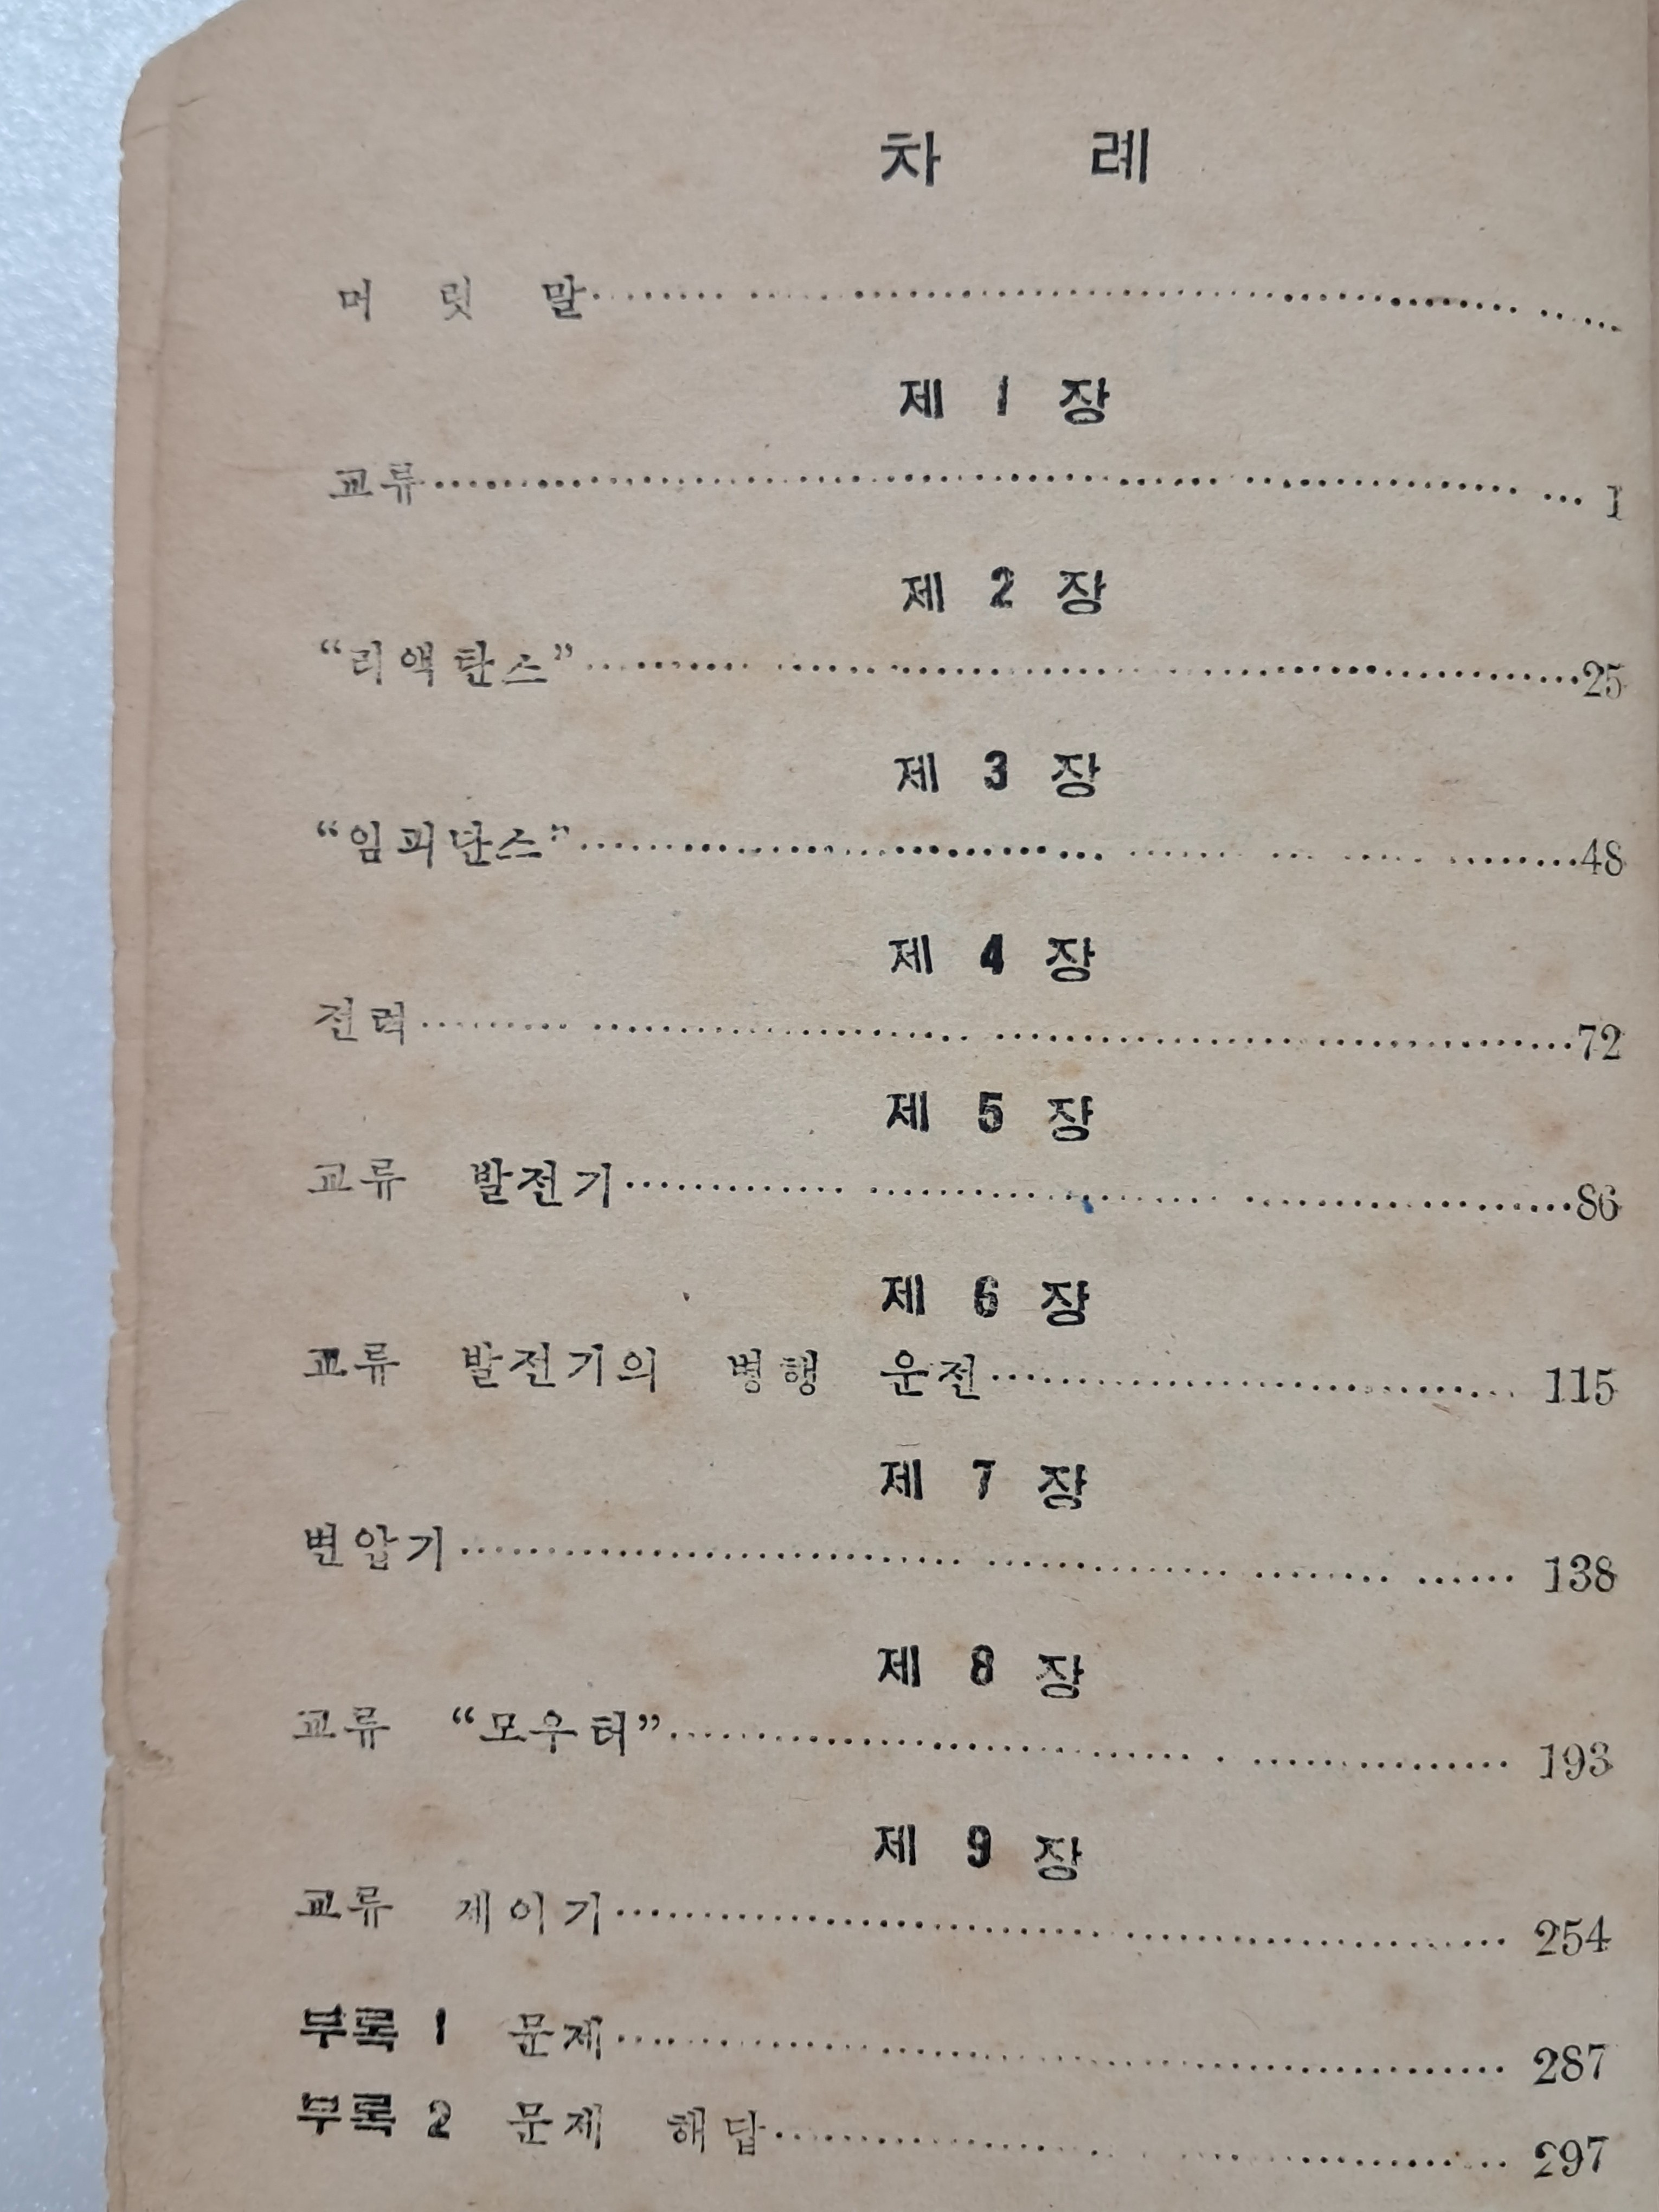 차 례
머 릿 말
제 1 장
교류 1
제 2 장
“리액탄스” 25
제 3 장
“임피단스” 48
제 4 장
전력 72
제 5 장
교류 발전기 86
제 6 장
교류 발전기의 병행 운전 115
제 7 장
변압기 138
제 8 장
교류 “모우터” 193
제 9 장
교류 게이기 254
부록 1 문제 287
부록 2 문제 해답 297